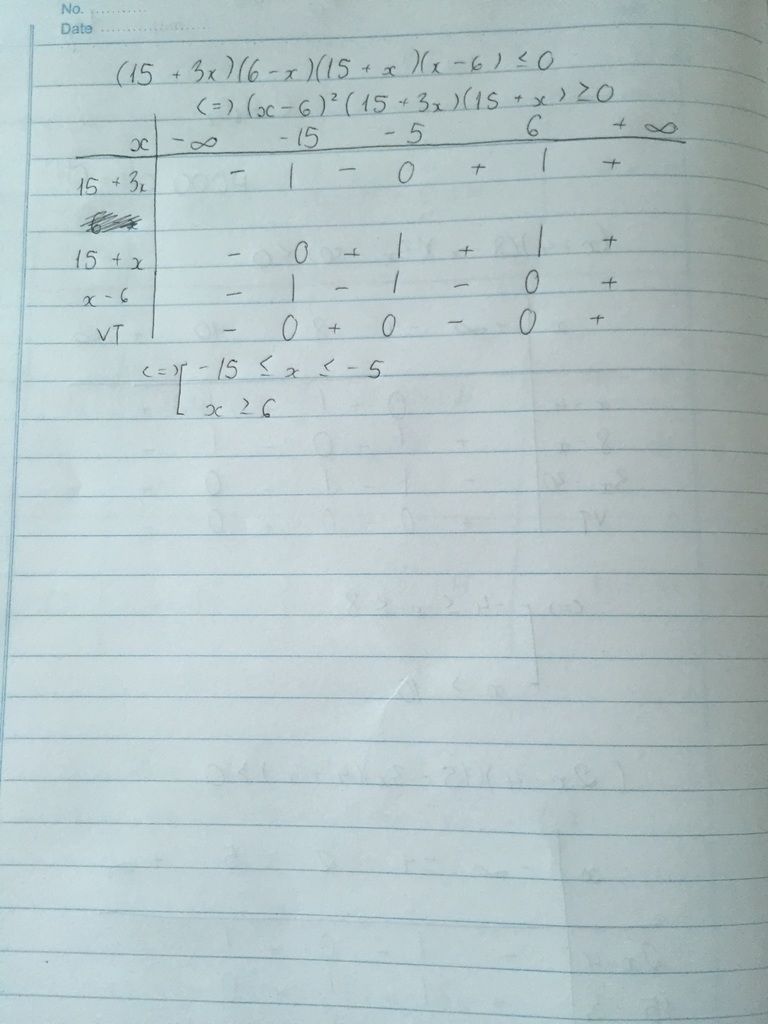 No. ............
Date ........................
(15 + 3x)(6 - x)(15 + x)(x - 6) ≤ 0
(=) (x - 6)² (15 + 3x)(15 + x) ≥ 0
x | -∞ -15 -5 6 +∞
15 + 3x | - | - 0 + | +
15 + x | - 0 + | + | +
x - 6 | - | - | - 0 +
VT | - 0 + 0 - 0 +
(=) [ -15 ≤ x ≤ -5
x ≥ 6